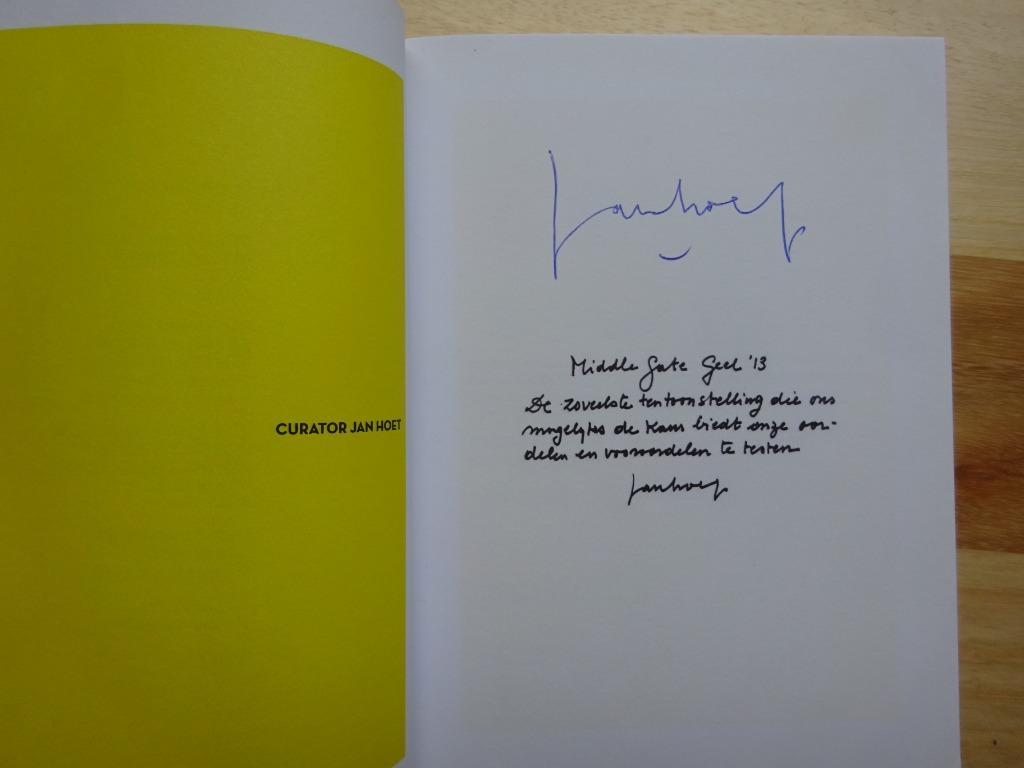 CURATOR JAN HOET
Jan hoet
Middle Gate Geel '13
De zoveelste tentoonstelling die ons
mogelijks de kans biedt onze oor-
delen en vooroordelen te testen
Jan hoet